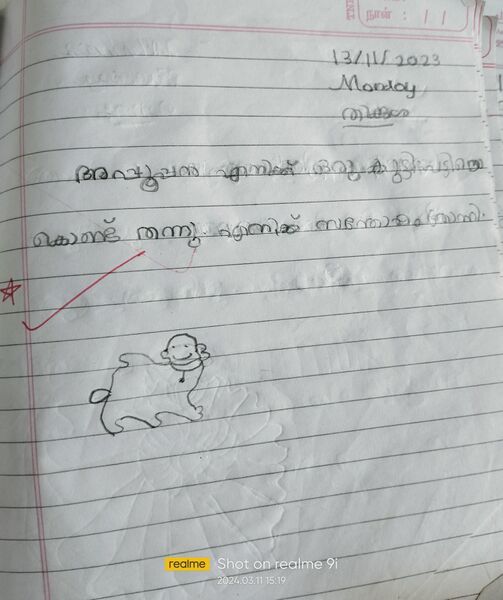 நாள் : 11
13/11/2023
Monday
തിങ്കൾ
അപ്പൂപ്പൻ എനിക്ക് ഒരു കുട്ടിയെ
കൊണ്ട് തന്നു. എനിക്ക് സന്തോഷമായി.
realme Shot on realme 9i
2024.03.11 15:19